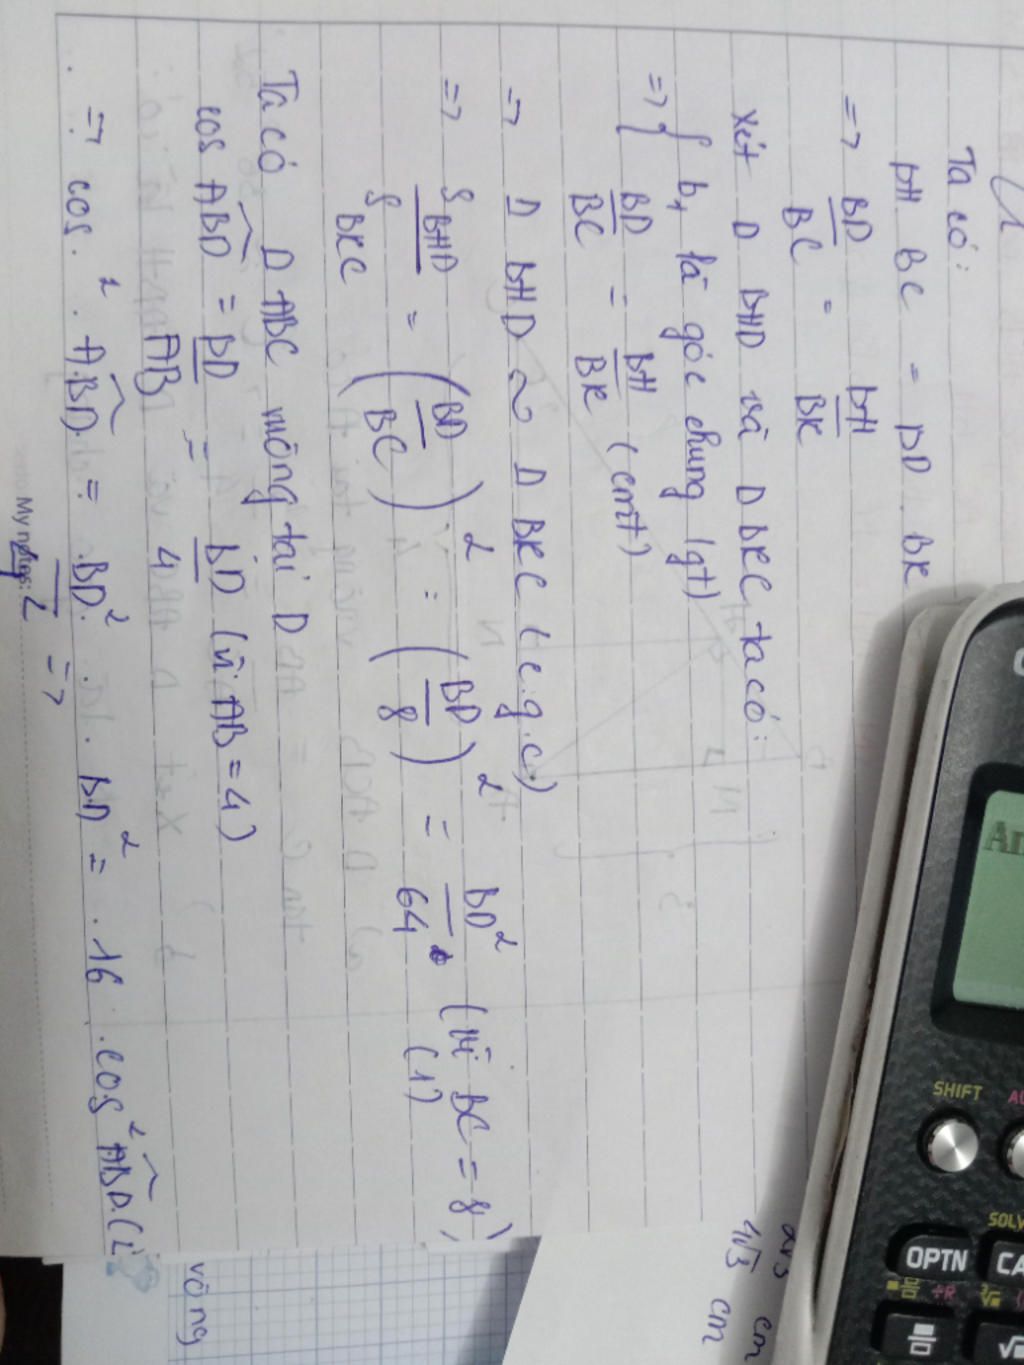 Ta có:
BH. BC = BD. BK
=> BD/BC = BH/BK
Xét Δ BHD và Δ BKC ta có:
=> { b₁ là góc chung (gt)
BD/BC = BH/BK (cmt)
=> Δ BHD ~ Δ BKC (c.g.c)
=> S BHD / S BKC = (BD/BC)² = (BD/8)² = BD²/64 (Vì BC = 8)
(1)
Ta có Δ ABC vuông tại D
cos ABD = BD/AB = BD/4 (Vì AB = 4)
=> cos² ABD = BD²/4² => BD² = 16. cos² ABD (2)
My notes:
SHIFT
OPTN
vông
cm
4√3 cm